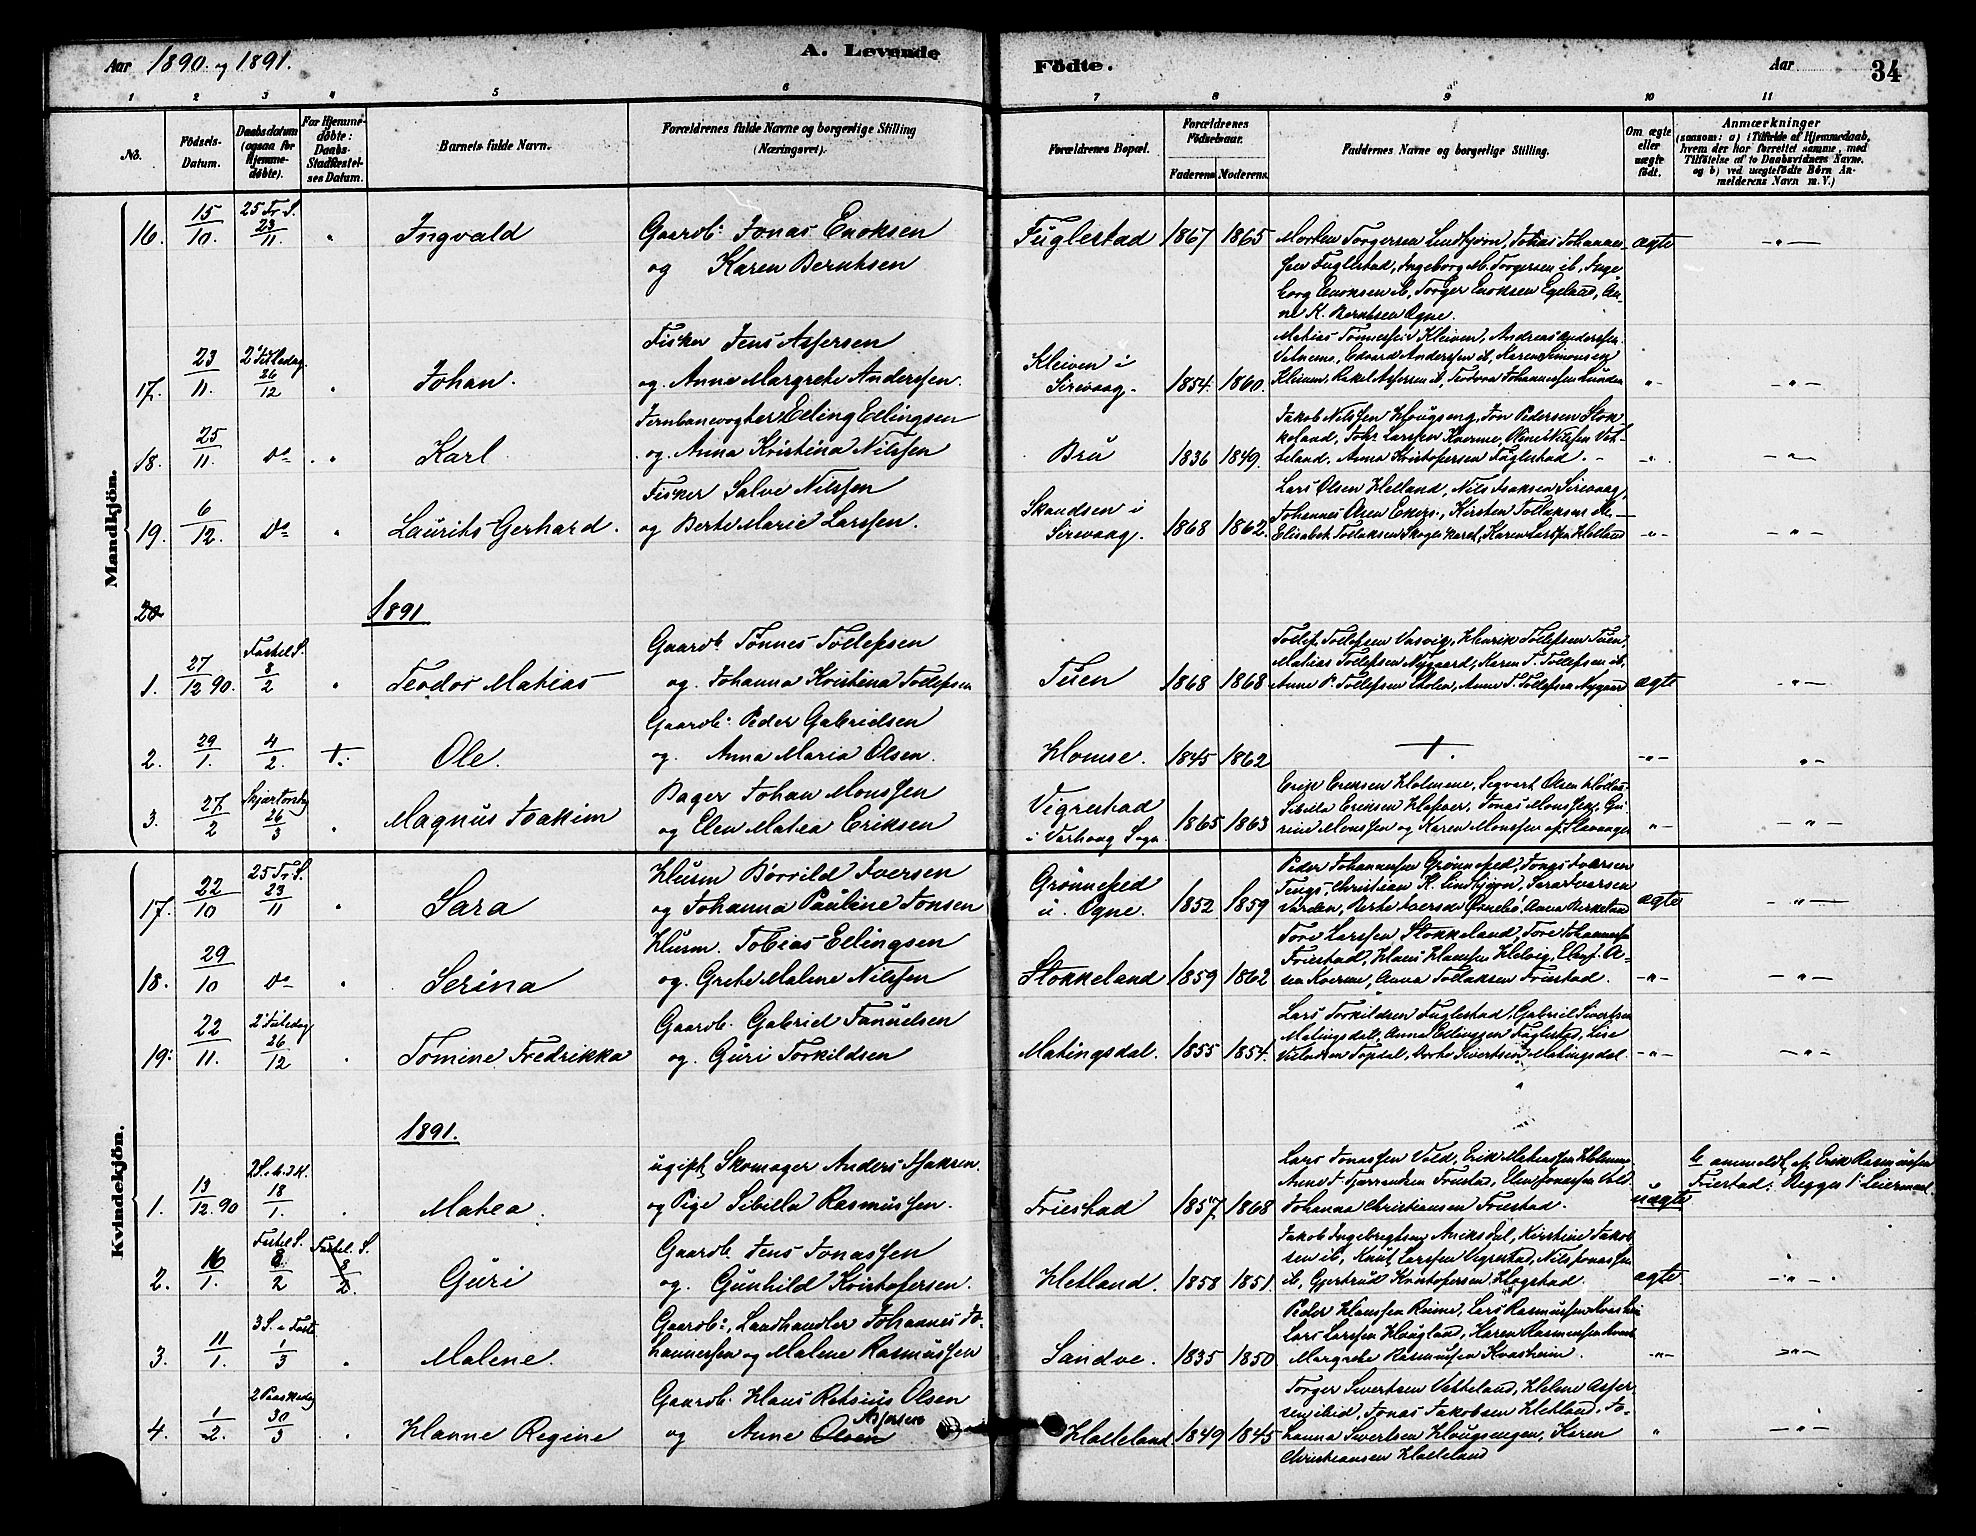 Aar 1890. og 1891.
A. Levende
Födte.
Aar
34
1 2 3 4 5 6 7 8 9 10 11
No.
Födsels-Datum.
Daabsdatum (ogsaa for Hjemme-døbte).
For Hjemme-døbte: Daabs-Stadfæstel-ses Datum.
Barnets fulde Navn.
Forældrenes fulde Navne og borgerlige Stilling (Næringsvei).
Forældrenes Bopæl.
Forældrenes Födselsaar.
Faderens Moderens.
Faddernes Navne og borgerlige Stilling.
Om ægte eller uægte født.
Anmærkninger
(saasom: a) i Tilfælde af Hjemmedaab,
hvem der har forrettet samme, med
Tilføielse af to Daabsvidners Navne.
og b) ved uægtefødte Börn An-
melderens Navn m. V.)
Mandkjön.
16. 15/10. 25 Tr. S. 23/11. " Ingvald
Gaardb: Jonas Enoksen
og Karen Berntsen
Fuglestad 1867 1865
Morten Torgersen Lindtjørn, Jonas Johannes-
sen Fuglestad, Ingeborg M. Torgersen ib, Inge-
borg Enoksen ib, Torger Enoksen Egeland, An-
ne K. Berntsen Ogne.
ægte -"-
17. 23/11. 2 Juledag 26/12 " Johan.
Fisker Jens Assersen
og. Anna Margrete Anderssen.
Kleiven i Sirevaag. 1854. 1860.
Matias Tønnessen Kleiven, Andreas Anderssen
Edvard Anderssen ib, Karen Simonsen
Kleiven, Rakel Assersen ib, Teodora Johannessen Lunden
"- -"-
18. 25/11. do " Karl.
Jernbanevogter Elling Ellingsen
og. Anna Kristina Nilssen
Bru 1836 1849.
Jakob Nilssen Hougseng, Jon Pedersen Stok-
keland, Johs Larssen Kverme, Oline Nilssen Vet-
teland. Anna Kristofersen Fuglestad.
-"- -"-
19. 6/12. do " Laurits Gerhard.
Fisker Salve Nilssen
og Berte Marie Larssen.
Skandsen i Sirevaag. 1868 1862.
Lars Olsen Helland, Nils Isaksen Sirevaag,
Johannes Olsen Kirsten Tollaksen
Elisabet Tollaksen Karen Larssen Helland
-"- -"-
20
1891
1. 27/12 90. Fastel. S. 8/2 " Teodor Matias
Gaardb. Tønnes Tollefsen
og. Johanna Kristina Tollefsen
Tuen 1868 1868
Tollef Tollefsen Vasvig, Henrik Tollefsen Tuen,
Matias Tollefsen Nygaard, Karen T. Tollefsen ib,
Anne P. Tollefsen Anne T. Tollefsen Nygaard
ægte -"-
2. 29/1. 4/2. +. Ole.
Gaardb: Peder Gabrielsen
og. Anna Maria Olsen.
Homse. 1845 1862
+.
-"- "-
3. 27/2 Skjærtorsdg 26/3 " Magnus Joakim
Bager Johan Monssen
og Elen Matea Eriksen
Vigrestad i Varhaug Sogn 1865 1863
Erik Eriksen Holmene, Sigvart Olsen
Sibilla Eriksen Jonas Monssen, Gu-
rine Monssen og Karen Monssen af Stavanger
-"- -"-
Kvindekjön.
17. 22/10 25 Tr. S. 23/11 " Sara
Husm Børvild Iversen
og Johanna Pauline Jonsen
Grønnefed u. Ogne. 1852 1859
Peder Johannessen Grønnefed, Jonas Iversen
Tengs, Christian K. Lindtjørn, Sara Iversen
Varden, Berte Iversd Anna Birkeland
ægte -"-
18. 29/10 do " Serina
Husm. Tobias Ellingsen
og. Grete Malene Nilssen
Stokkeland 1859 1862
Tore Larssen Stokkeland, Tore Johannessen
Friestad, Hans Hanssen Helvig, Elen J. A-
sen Kverme, Anna Tollaksen Friestad.
-"- -"-
19. 22/11. 2 Juledag 26/12 " Tomine Fredrikka
Gaardb. Gabriel Tanuelsen
og. Guri Torkildsen
Matingsdal. 1855 1854.
Lars Torkildsen Fuglestad, Gabriel Sivertsen
Matingsdal, Anna Ellingsen Fuglestd, Lise
Topdal, Dorte Sivertsen Matingsdal.
-"- -"-
1891.
1. 13/12.90 2 S. e. 3 K. 18/1. " Matea.
ugift Skomager Anders Isaksen.
og Pige Sibilla Rasmussen.
Friestad 1857 1868
Lars Jonassen Vold, Erik Matiassen Holmene
Anne T. Friestad, Elen Jonassen Vold
Johanna Christiansen Friestad.
uægte
b anmeldt af Erik Rasmussen
Friestad; Begges 1ste Leiermaal.
2. 16/1. Fastel. S. 8/2 Fastel. S. 8/2. Guri
Gaardb. Jens Jonassen
og. Gunhild Kristofersen.
Hetland. 1858 1851.
Jakob Ingebregtsen Kirstine Jakob-
sen ib, Knut Larssen Vigrestad, Nils Jonassen
ib, Gjertrud Kristofersen Hogstad.
ægte -"-
3. 11/1. 3 S. i Faste 1/3 " Malene.
Gaardb:, Landhandler Johannes Jo-
hannessen og Malene Rasmussen
Sandve. 1835 1850
Peder Hanssen Reime, Lars Rasmussen Kvasheim
Lars Larssen Hougland, Karen Rasmussen
Margrete Rasmussen Kvasheim.
-"- -"-
4. 1/2. 2 Paaskedag 30/3 " Hanne Regine
Gaardb. Hans Retsius Olsen
og Anne Olsen Assersen
Hælleland 1849 1845
Torger Sivertsen Vetteland, Helene Asser-
sen ibid, Jonas Jakobsen Hetland, Jo-
hanna Sivertsen Hougsengen, Karen
Christiansen Hælleland
" -"-